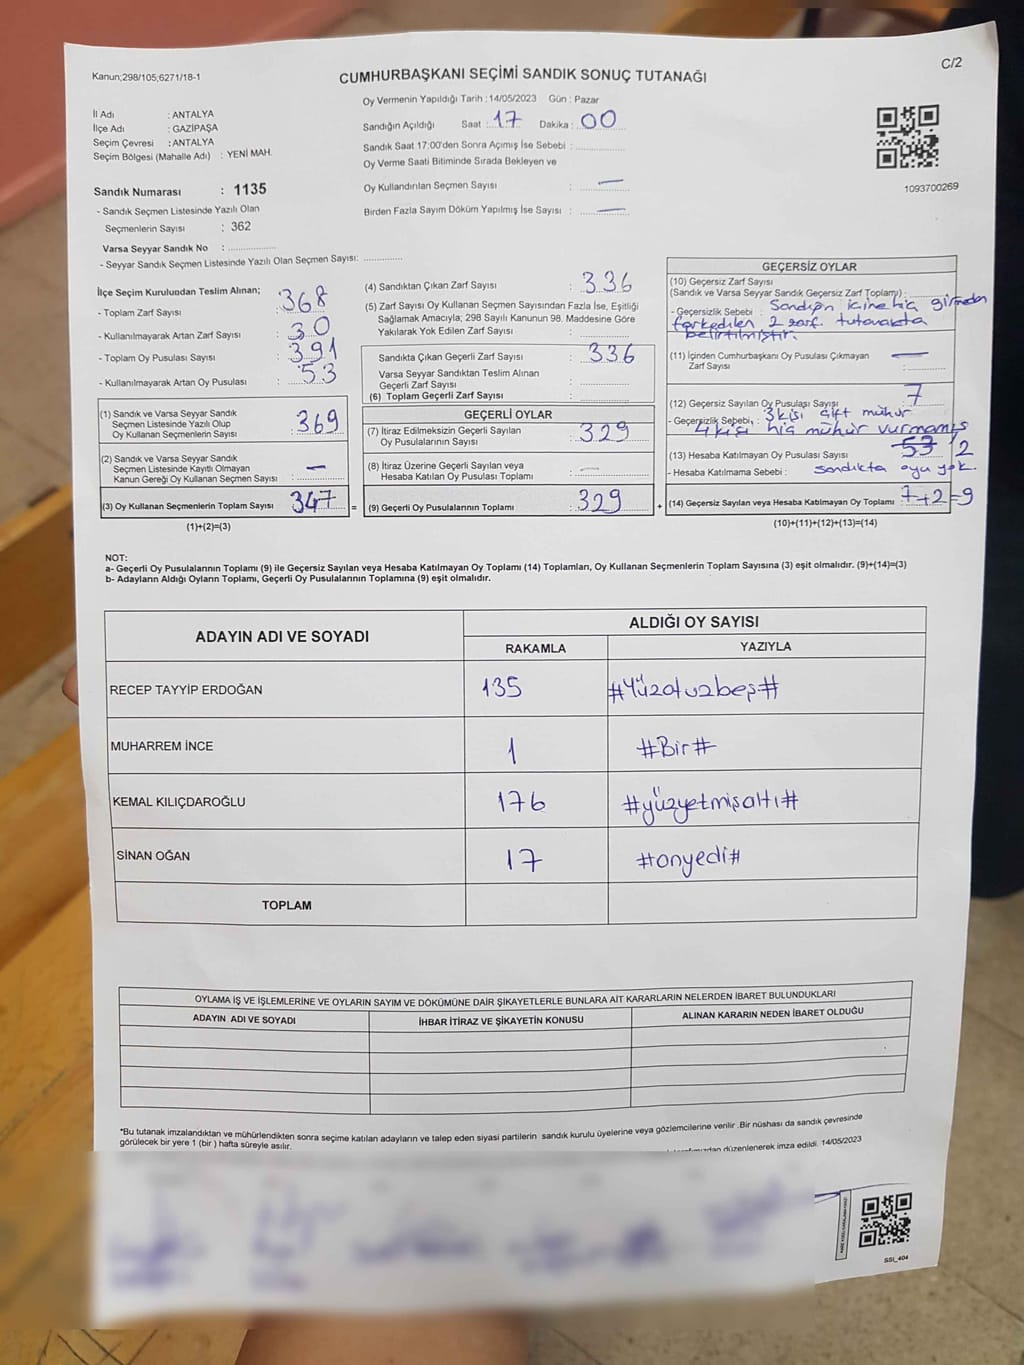 Kanun;298/105;6271/18-1
C/2
CUMHURBAŞKANI SEÇİMİ SANDIK SONUÇ TUTANAĞI
İl Adı : ANTALYA
İlçe Adı : GAZİPAŞA
Seçim Çevresi : ANTALYA
Seçim Bölgesi (Mahalle Adı) : YENİ MAH.
Sandık Numarası : 1135
- Sandık Seçmen Listesinde Yazılı Olan
Seçmenlerin Sayısı : 362
Varsa Seyyar Sandık No :
- Seyyar Sandık Seçmen Listesinde Yazılı Olan Seçmen Sayısı:
Oy Vermenin Yapıldığı Tarih :14/05/2023 Gün : Pazar
Sandığın Açıldığı Saat : 17 Dakika : 00
Sandık Saat 17:00'den Sonra Açımış İse Sebebi :
Oy Verme Saati Bitiminde Sırada Bekleyen ve
Oy Kullandırılan Seçmen Sayısı : —
Birden Fazla Sayım Döküm Yapılmış İse Sayısı : —
1093700269
İlçe Seçim Kurulundan Teslim Alınan;
- Toplam Zarf Sayısı : 368
- Kullanılmayarak Artan Zarf Sayısı : 30
- Toplam Oy Pusulası Sayısı : 391
- Kullanılmayarak Artan Oy Pusulası : 53
(1) Sandık ve Varsa Seyyar Sandık
Seçmen Listesinde Yazılı Olup
Oy Kullanan Seçmenlerin Sayısı : 369
(2) Sandık ve Varsa Seyyar Sandık
Seçmen Listesinde Kayıtlı Olmayan
Kanun Gereği Oy Kullanan Seçmen Sayısı : —
(3) Oy Kullanan Seçmenlerin Toplam Sayısı : 347
(1)+(2)=(3)
=
(4) Sandıktan Çıkan Zarf Sayısı : 336
(5) Zarf Sayısı Oy Kullanan Seçmen Sayısından Fazla İse, Eşitliği
Sağlamak Amacıyla; 298 Sayılı Kanunun 98. Maddesine Göre
Yakılarak Yok Edilen Zarf Sayısı :
Sandıkta Çıkan Geçerli Zarf Sayısı : 336
Varsa Seyyar Sandıktan Teslim Alınan
Geçerli Zarf Sayısı :
(6) Toplam Geçerli Zarf Sayısı :
GEÇERLİ OYLAR
(7) İtiraz Edilmeksizin Geçerli Sayılan
Oy Pusulalarının Sayısı : 329
(8) İtiraz Üzerine Geçerli Sayılan veya
Hesaba Katılan Oy Pusulası Toplamı : —
(9) Geçerli Oy Pusulalarının Toplamı : 329
+
GEÇERSİZ OYLAR
(10) Geçersiz Zarf Sayısı
(Sandık ve Varsa Seyyar Sandık Geçersiz Zarf Toplamı) :
- Geçersizlik Sebebi : Sandığın içine hiç girmeden
farkedilen 2 zarf. tutanakta
belirtilmiştir.
(11) İçinden Cumhurbaşkanı Oy Pusulası Çıkmayan
Zarf Sayısı : —
(12) Geçersiz Sayılan Oy Pusulası Sayısı : 7
- Geçersizlik Sebebi, : 3 kişi çift mühür
4 kişi hiç mühür vurmamış
(13) Hesaba Katılmayan Oy Pusulası Sayısı : 53 2
- Hesaba Katılmama Sebebi : sandıkta oyu yok.
(14) Geçersiz Sayılan veya Hesaba Katılmayan Oy Toplamı : 7+2=9
(10)+(11)+(12)+(13)=(14)
NOT:
a- Geçerli Oy Pusulalarının Toplamı (9) ile Geçersiz Sayılan veya Hesaba Katılmayan Oy Toplamı (14) Toplamları, Oy Kullanan Seçmenlerin Toplam Sayısına (3) eşit olmalıdır. (9)+(14)=(3)
b- Adayların Aldığı Oyların Toplamı, Geçerli Oy Pusulalarının Toplamına (9) eşit olmalıdır.
ADAYIN ADI VE SOYADI
ALDIĞI OY SAYISI
RAKAMLA YAZIYLA
RECEP TAYYİP ERDOĞAN 135 #Yüzotuzbeş#
MUHARREM İNCE 1 #Bir#
KEMAL KILIÇDAROĞLU 176 #yüzyetmişaltı#
SİNAN OĞAN 17 #onyedi#
TOPLAM
OYLAMA İŞ VE İŞLEMLERİNE VE OYLARIN SAYIM VE DÖKÜMÜNE DAİR ŞİKAYETLERLE BUNLARA AİT KARARLARIN NELERDEN İBARET BULUNDUKLARI
ADAYIN ADI VE SOYADI İHBAR İTİRAZ VE ŞİKAYETİN KONUSU ALINAN KARARIN NEDEN İBARET OLDUĞU
*Bu tutanak imzalandıktan ve mühürlendikten sonra seçime katılan adayların ve talep eden siyasi partilerin sandık kurulu üyelerine veya gözlemcilerine verilir .Bir nüshası da sandık çevresinde
görülecek bir yere 1 (bir ) hafta süreyle asılır.
düzenlenerek imza edildi. 14/05/2023
SSİ_404